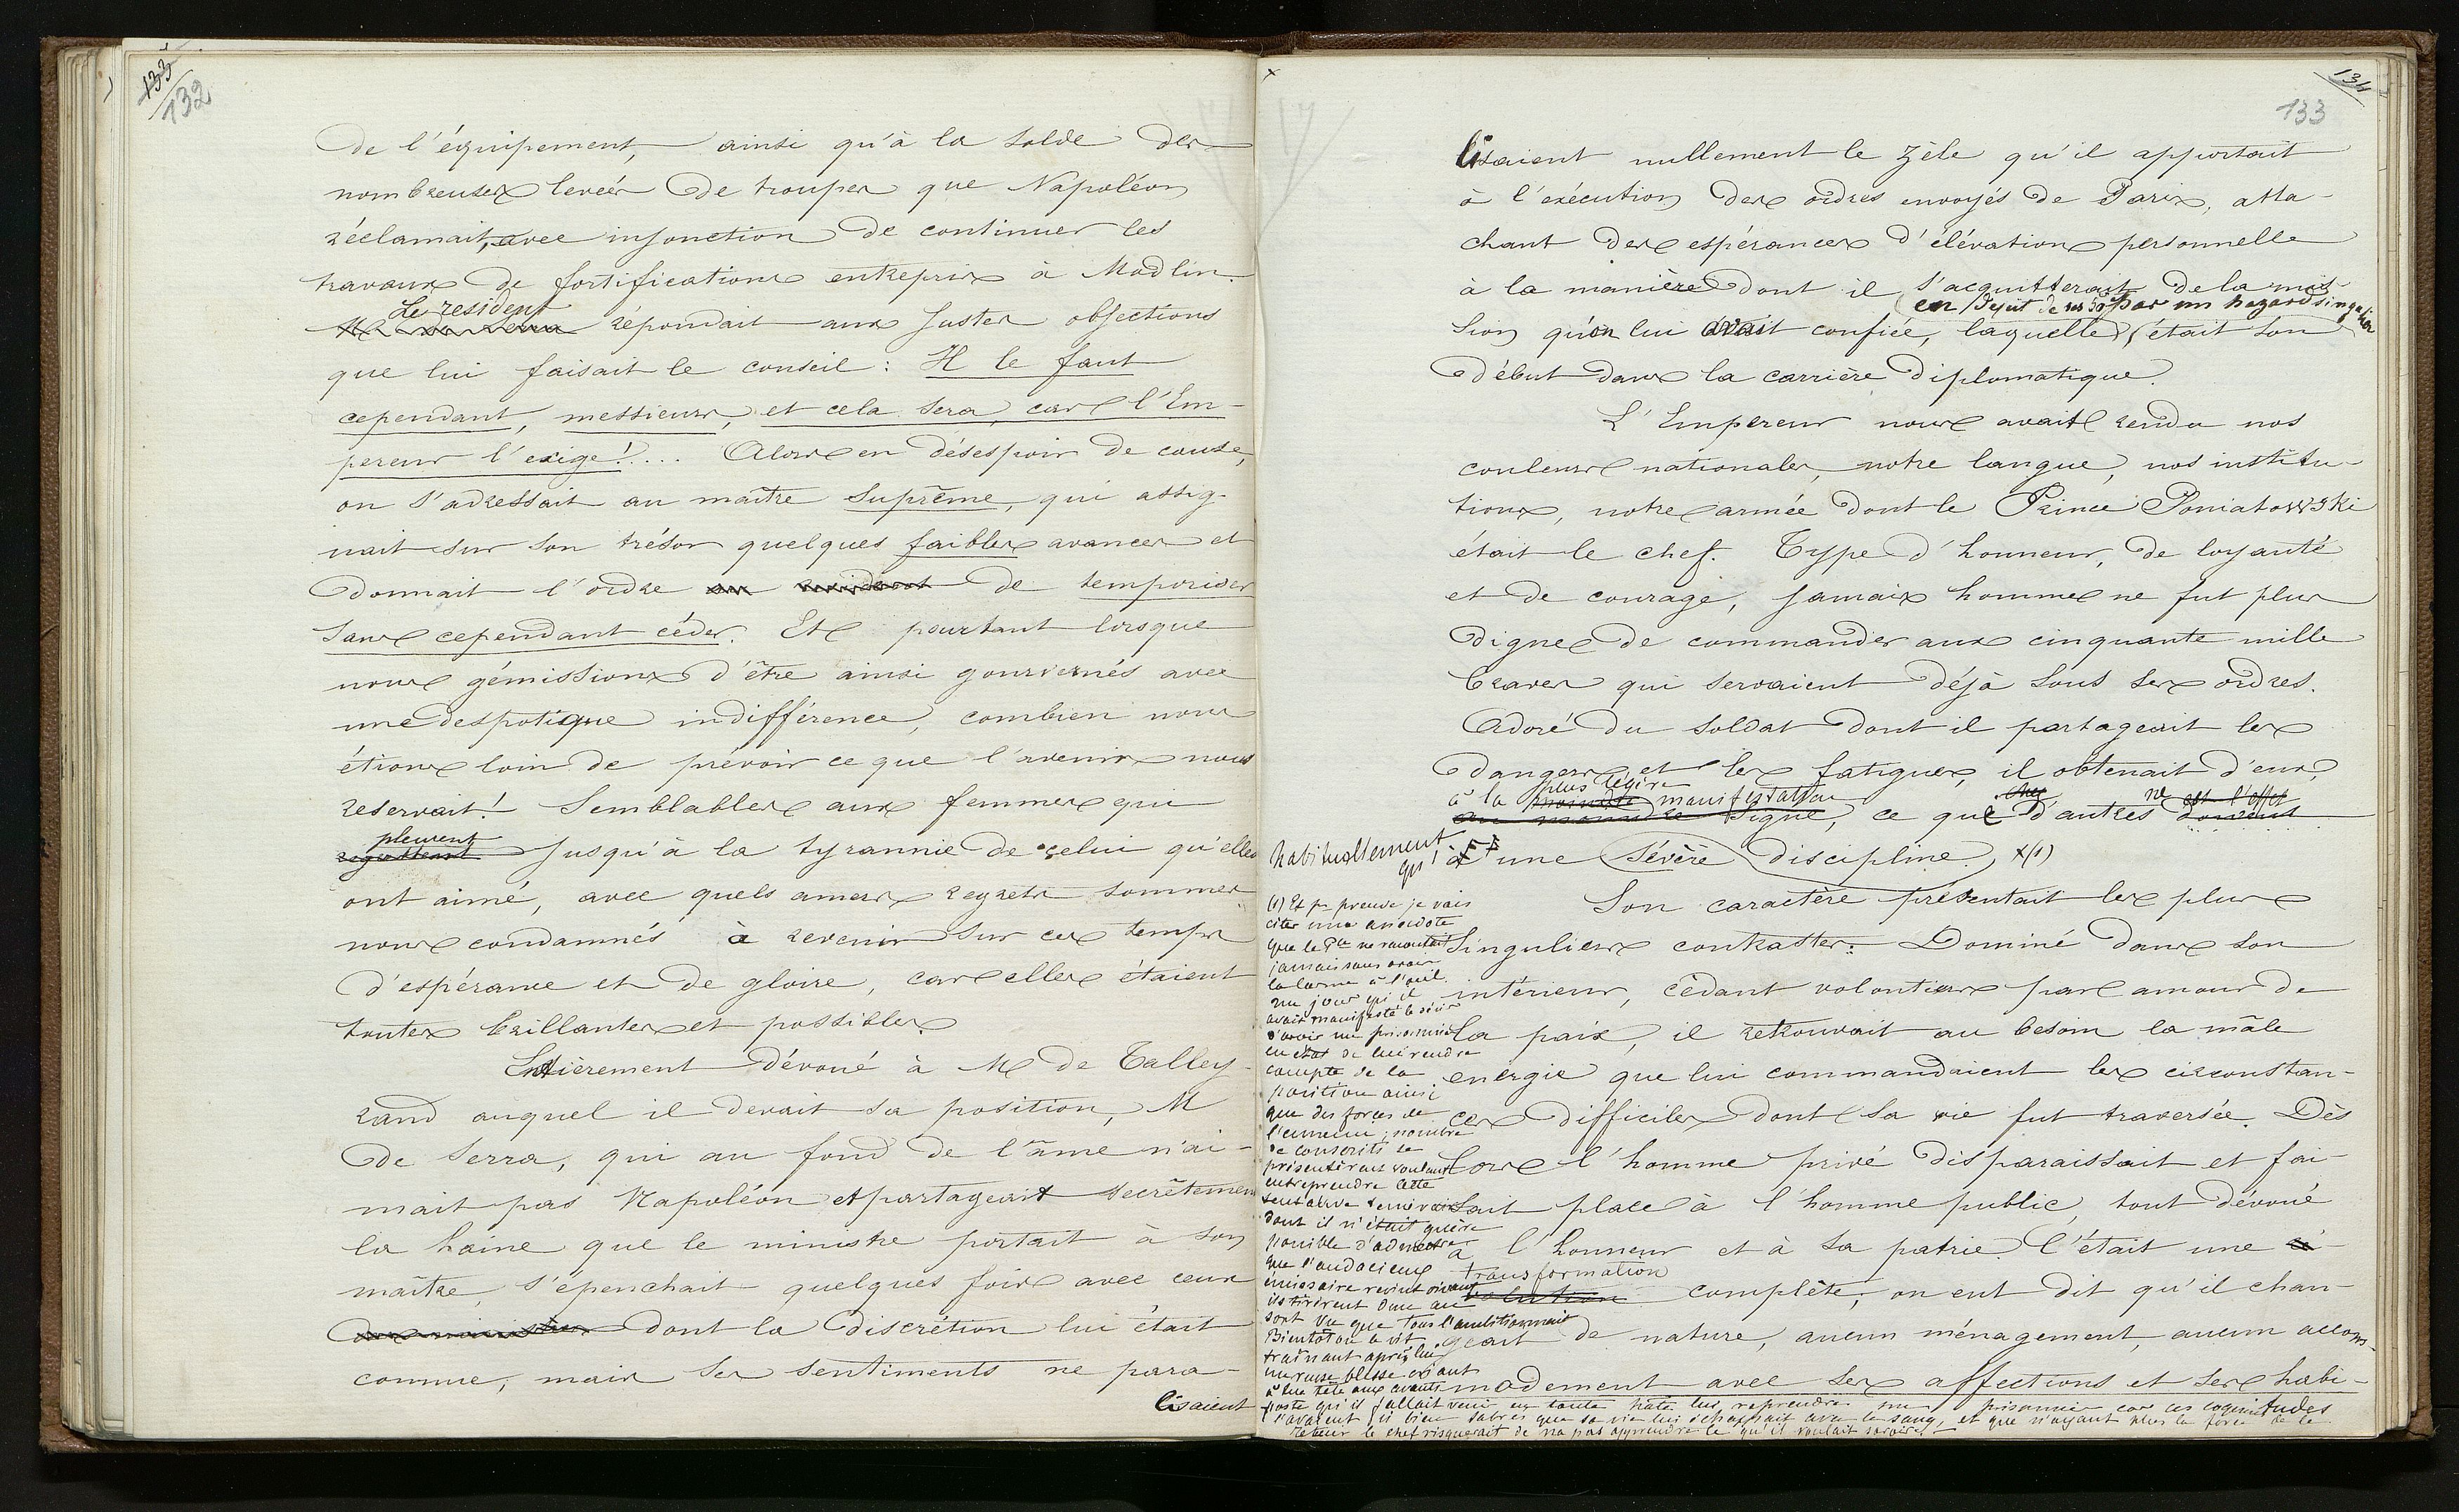 133
132
de l'équipement, ainsi qu'à la solde des
nombreuses leveés de troupes que Napoléon
réclamait, avec injonction de continuer les
travaux de fortifications entrepris à Modlin.
Le resident
répondait aux justes objections
que lui faisait le conseil : Il le faut
cependant, messieurs, et cela sera, car l'Em-
pereur l'exige !.... Alors en désespoir de cause,
on s'adressait au maître suprême, qui assig-
nait sur son trésor quelques faibles avances et
donnait l'ordre au resident de temporiser
sans cependant céder. Et pourtant lorsque
nous gémissions d'être ainsi gouvernés avec
une despotique indifférence, combien nous
étions loin de prévoir ce que l'avenir nous
reservait ! Semblables aux femmes qui
pleurent
regrettent jusqu'à la tyrannie de celui qu'elles
ont aimé, avec quels amers regrets sommes
nous condamnés à revenir sur ces temps
d'espérance et de gloire, car elles étaient
toutes brillantes et possibles.
Entièrement dévoué à M de Talley-
rand auquel il devait sa position, M
de Serra, qui au fond de l'âme n'ai-
mait pas Napoléon et partageait secrètement
la haine que le ministre portait à son
maître, s'épenchait quelques fois avec ceux
dont la discrétion lui était
connue, mais ses sentiments ne para-
lisaient
134
133
lisaient nullement le zèle qu'il apportait
à l'exécution des ordres envoyés de Paris, atta-
chant des espérances d'élévation personnelle
à la manière dont il s'acquitterait de la mis-
en dépit de ses 50 par un hazard singulier
sion qu'on lui avait confiée, laquelle était son
début dans la carrière diplomatique.
L'Empereur nous avait rendu nos
couleurs nationales, notre langue, nos institu-
tions, notre armée dont le Prince Poniatowski
était le chef. Type d'honneur, de loyauté
et de courage, jamais homme ne fut plus
digne de commander aux cinquante mille
braves qui servaient déjà sous ses ordres.
Adoré du soldat dont il partageait les
dangers et les fatigues, il obtenait d'eux,
plus légère
à la moindre manifestation chez ne est l'effet
au moindre signe, ce que d'autres doivent
habituellement
qu'à une sévère discipline. x(1)
Son caractère présentait les plus
singuliers contrastes : Dominé dans son
intérieur, cédant volontiers par amour de
la paix, il retrouvait au besoin la mâle
energie que lui commandaient les circonstan-
ces difficiles dont sa vie fut traversée. Dès
lors l'homme privé disparaissait et fai-
sait place à l'homme public, tout dévoué
à l'honneur et à sa patrie. C'était une
transformation
complète; on eut dit qu'il chan-
geait de nature, aucun ménagement, aucun accom-
modement avec ses affections et ses habi-
tudes
(1) Et pr preuve je vais
citer une anecdote
que le Pce ne racontait
jamais sans avoir
la larme à l'œil.
un jour qu'il
avait manifesté le désir
d'avoir un prisonnier
en état de lui rendre
compte de la
position ainsi
que des forces de
l'ennemi, nombre
de conscrits se
présentèrent voulant
entreprendre cette
tentative téméraire
dont il n'était guère
possible d'admettre
que l'audacieux
émissaire revint vivant
ils tirèrent donc au
sort vu que tous l'ambitionnait
Bientôt on le vit
traînant après lui
un russe blessé criant
à tue tête aux avants
poste qu'il fallait venir en toute hâte lui reprendre un prisonnier car ces coquins
l'avaient si bien sabrés que sa vie lui échappait avec le sang, et que n'ayant plus la force de le
retenir le chef risquerait de ne pas apprendre ce qu'il voulait savoir.